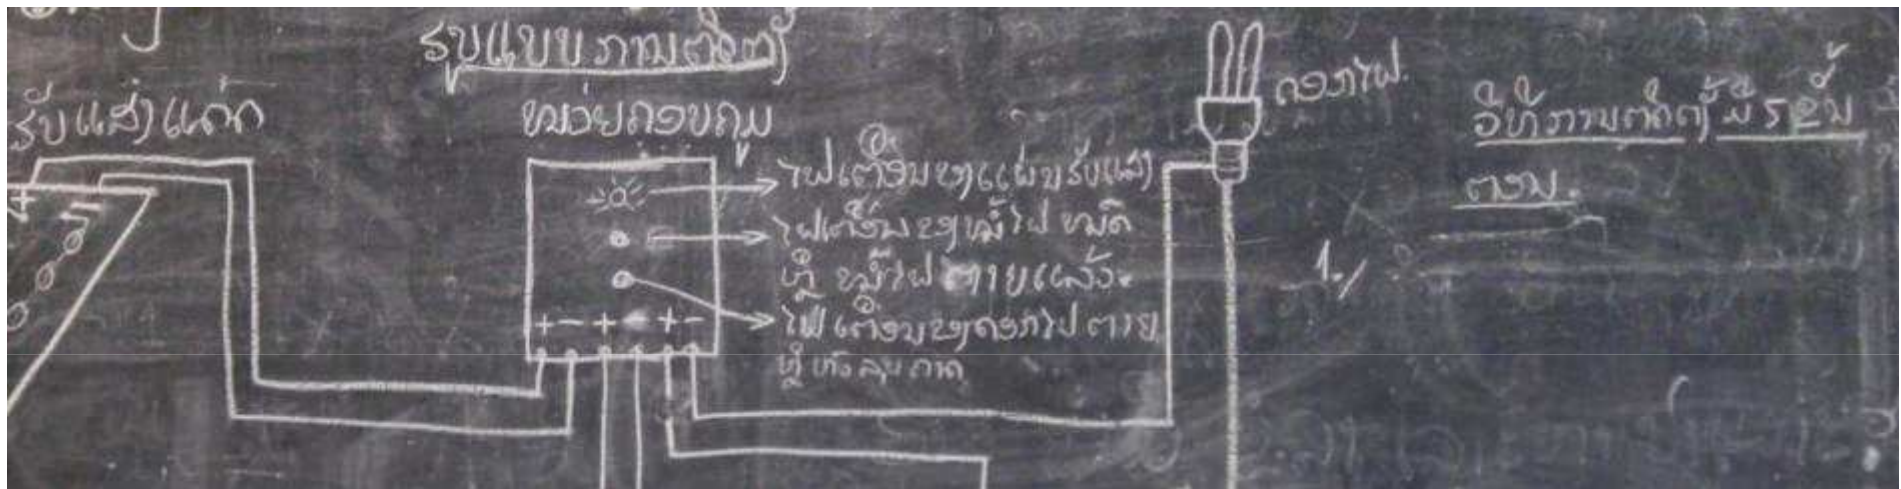 ຮູບແບບການຕິດຕັ້ງ
ຮັບແສງແດດ
ໜ່ວຍຄວບຄຸມ
+ - + - + -
ໄຟເຕືອນຂອງແຜ່ນຮັບແສງ
ໄຟເຕືອນຂອງໝໍ້ໄຟ ໝົດ
ຫຼື ໝໍ້ໄຟຕາຍແລ້ວ
ໄຟເຕືອນຂອງດອກໄຟຕາຍ
ຫຼື ຫລຸບກາດ
ດອກໄຟ.
ວິທີການຕິດຕັ້ງມີ 5 ຂັ້ນ
ຕອນ.
1./